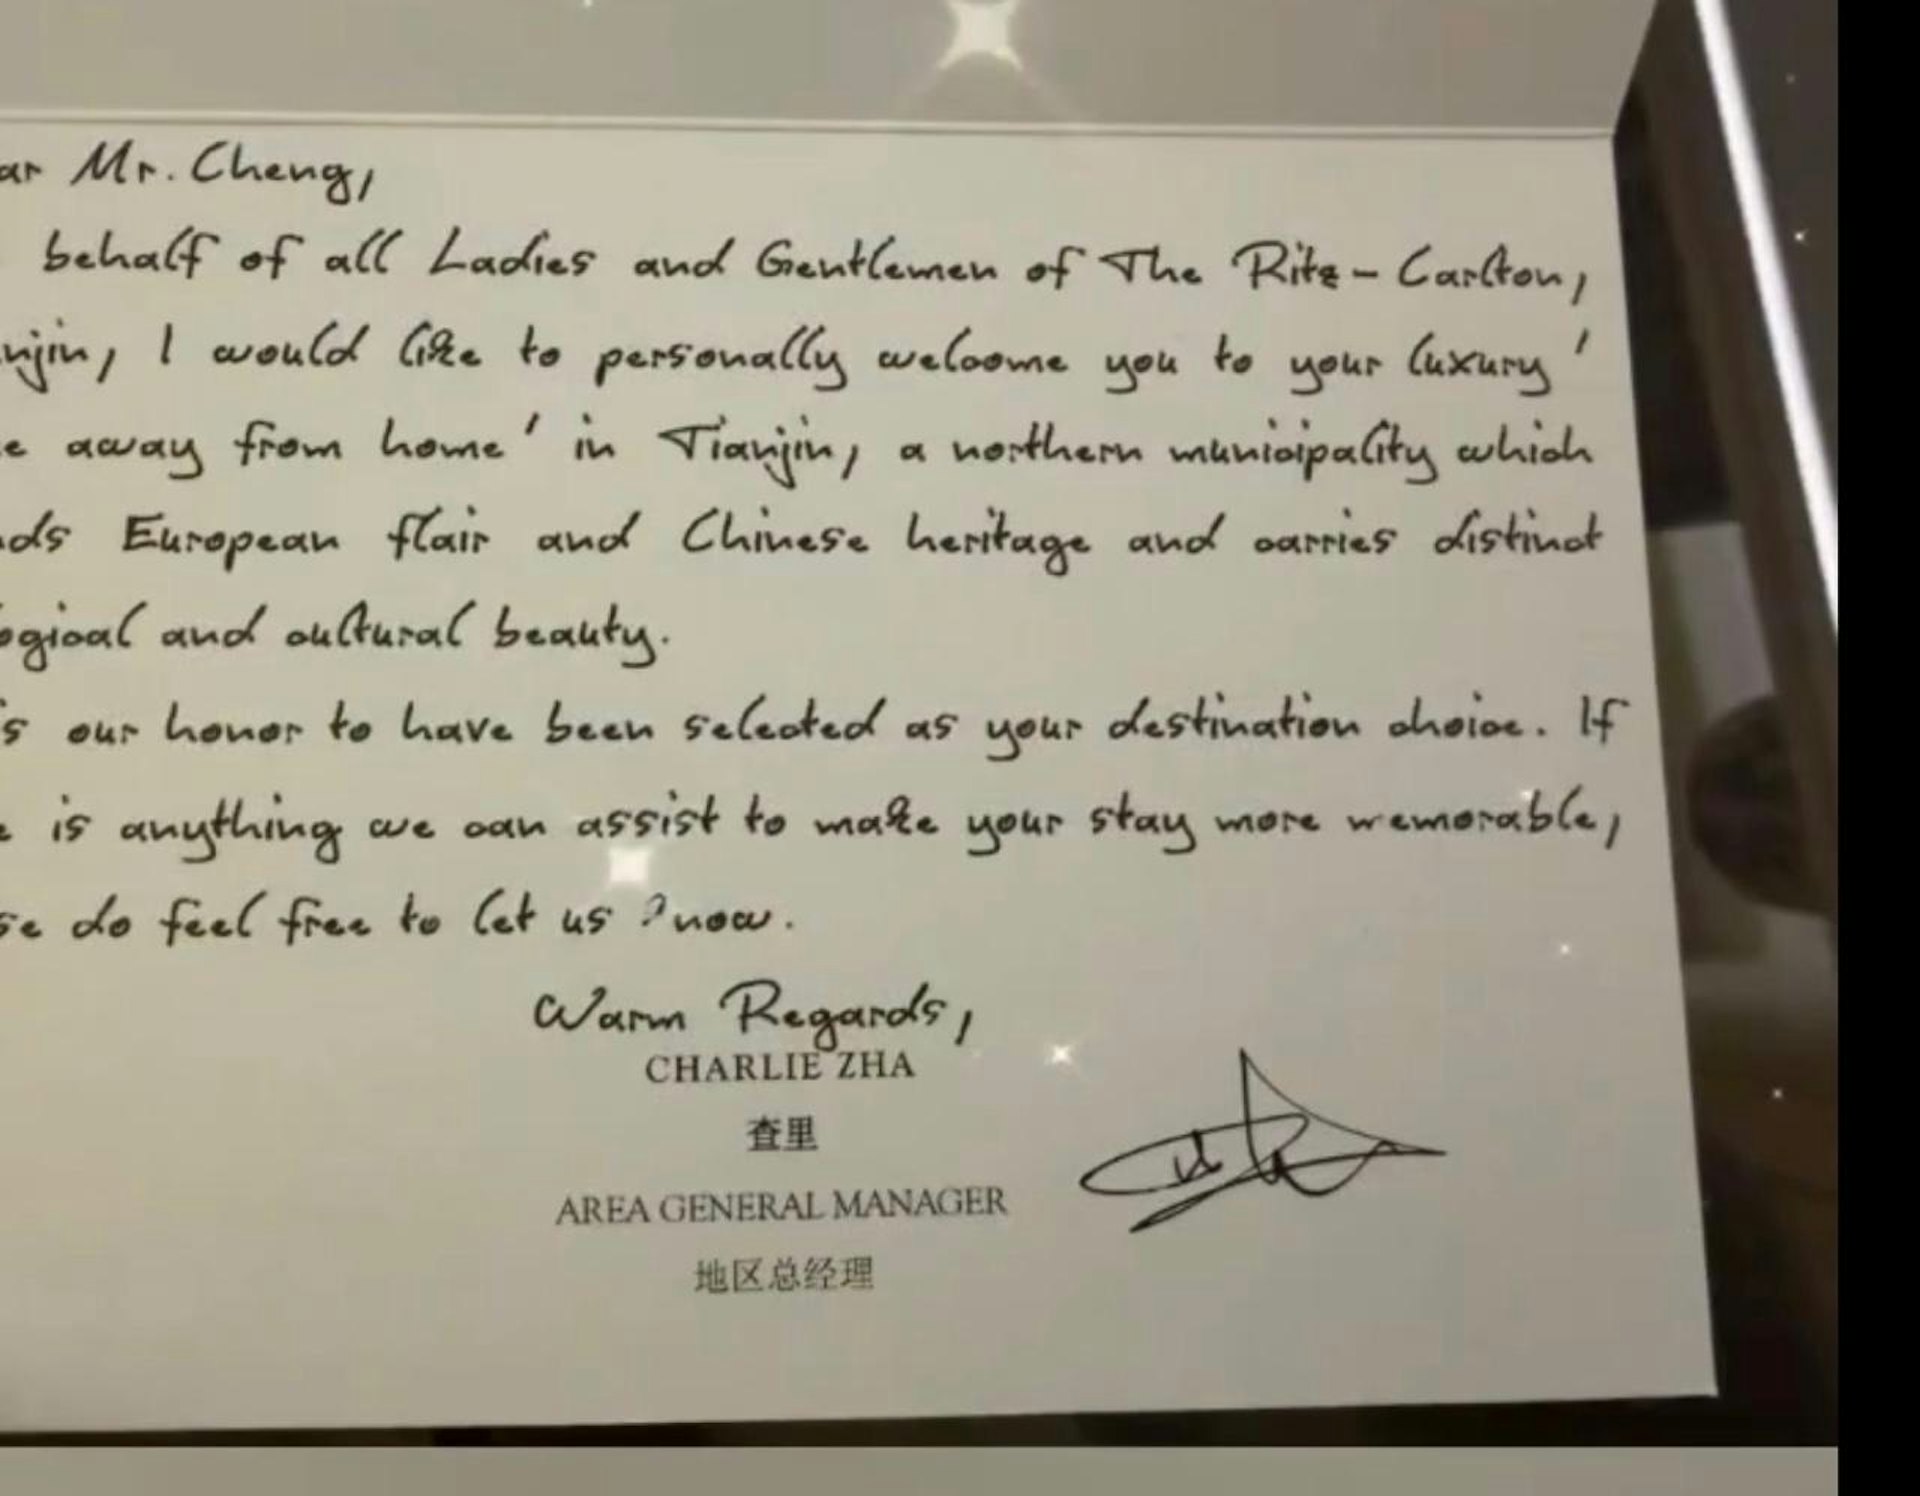 ar Mr. Cheng,
behalf of all Ladies and Gentlemen of The Ritz-Carlton,
njin, I would like to personally welcome you to your luxury '
e away from home' in Tianjin, a northern municipality which
nds European flair and Chinese heritage and carries distinct
ogical and cultural beauty.
s our honor to have been selected as your destination choice. If
e is anything we can assist to make your stay more memorable,
se do feel free to let us know.
Warm Regards,
CHARLIE ZHA
查里
AREA GENERAL MANAGER
地区总经理